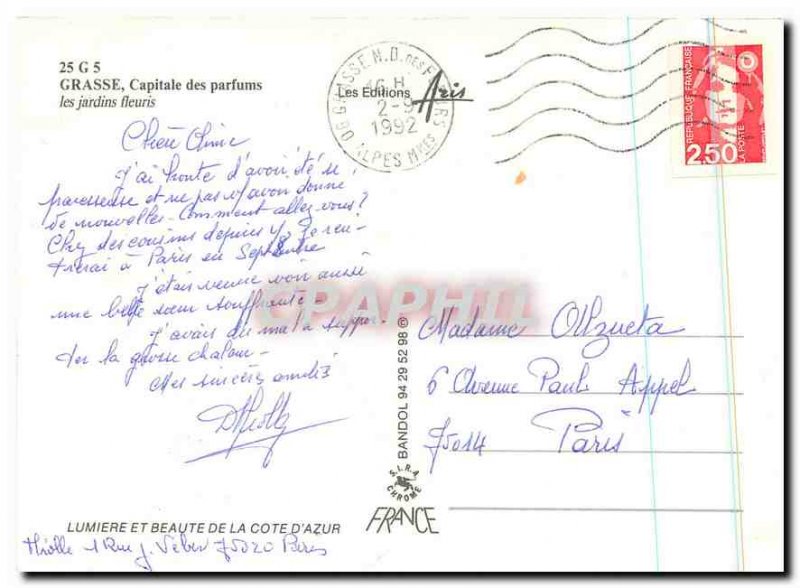 25 G 5
GRASSE, Capitale des parfums
les jardins fleuris
GRASSE N.D. DES FLEURS
16 H
2-9
1992
06 ALPES Mmes
Les Editions Aris
REPUBLIQUE FRANÇAISE
LA POSTE
2,50
Chère Amie
J'ai honte d'avoir été si
paresseuse et ne pas v/ avoir donné
de nouvelles - Comment allez vous?
Chez des cousins depuis je ren-
trerai à Paris en Septembre
J'étais venue voir aussi
une belle soeur souffrante -
J'avais du mal à suppor-
ter la grosse chaleur -
Mes sincères amitiés
DThiolle
CPAPHIL
Madame Ollzueta
6 Avenue Paul Appel
75014 Paris
BANDOL 94 29 52 98 ®
S.I.R.A.
CHROME
FRANCE
LUMIERE ET BEAUTE DE LA COTE D'AZUR
Thiolle 1 Rue J. Veber 75020 Paris